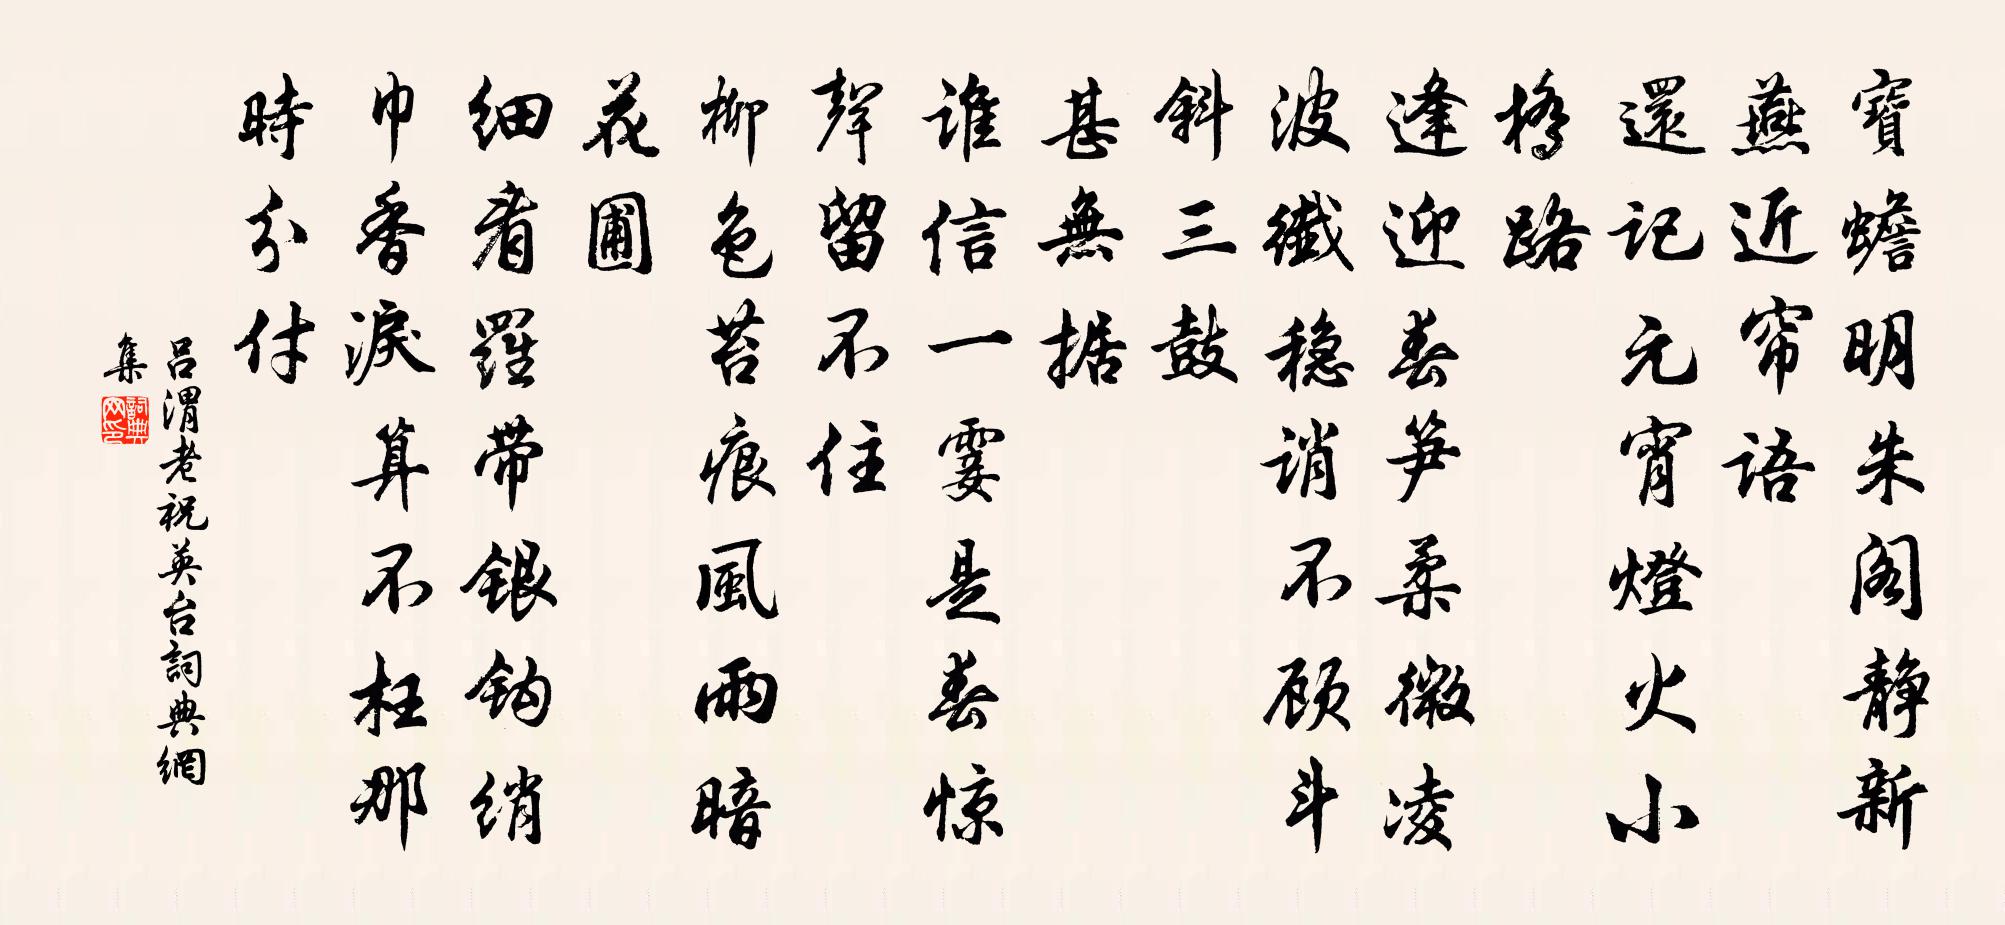 寶蟾明朱阁靜新
燕近帘语
還记元宵燈火小
橋路
逢迎春笋柔微凌
波纖稳诮不顾斗
斜三鼓
甚無据
谁信一霎是春惊
聲留不住
柳色苔痕風雨暗
花圃
细看羅带银钩绡
巾香淚算不枉那
時分付
吕渭老祝英台詞典網
集
詞典
网印